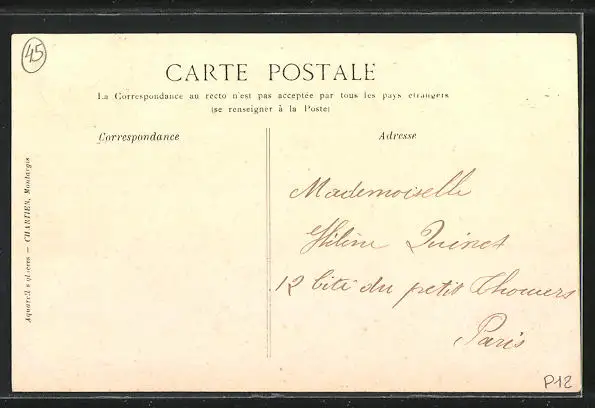 45
CARTE POSTALE
La Correspondance au recto n'est pas acceptée par tous les pays etrangers
(se renseigner à la Poste)
Correspondance
Adresse
CHARTIER, Montargis
Mademoiselle
Hélène Quinet
12 Cité du petit Thouars
Paris
P12